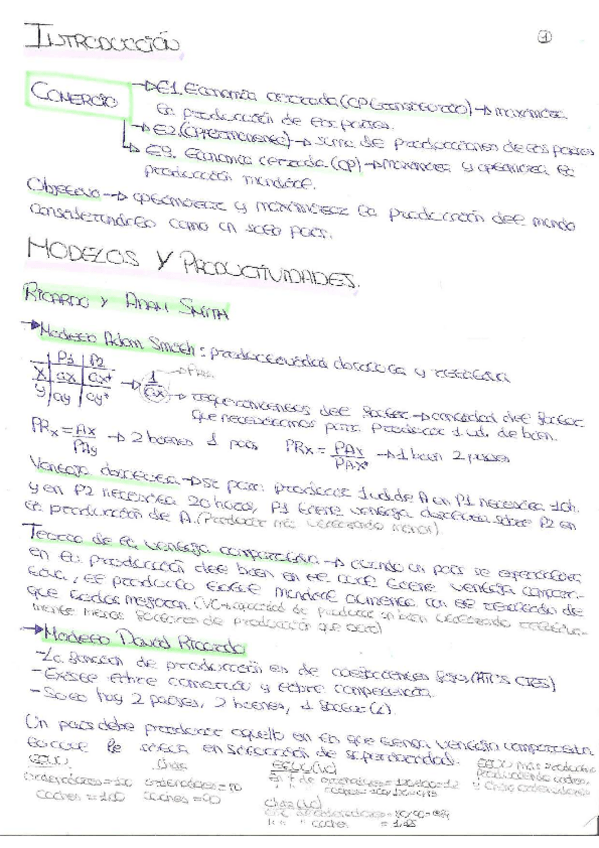 INTRODUCCIÓN
1
COMERCIO → E1. Economía cerrada (CP → maximizar
la producción de los países.
→ E2. → suma de producciones de los países
→ E3. Economía cerrada (CP) → maximizar y optimizar la
producción mundial.
Objetivo → optimizar y maximizar la producción del mundo
considerándolo como un solo país.
MODELOS Y PRODUCTIVIDADES.
RICARDO Y ADAM SMITH
→ Modelo Adam Smith: productividad absoluta y relativa
P1 P2
X ax ax*
Y ay ay*
→ 1/ax
→ requerimientos del factor → cantidad del factor
que necesitamos para producir 1 ud. de bien.
PRx = → 2 bienes 1 país PRx = PAx/PAx* → 1 bien 2 países
Ventaja absoluta → si para producir 1 ud de A en P1 necesita 10h
y en P2 necesita 20 horas, P1 tiene ventaja absoluta sobre P2 en
la producción de A. (Producir más
Teoría de la ventaja comparativa → cuando un país se especializa
en la producción del bien en el cual tiene ventaja compara-
tiva, el producto total mundial aumenta con el resultado de
que todos mejoran. (VC = capacidad de producir un bien utilizando relativa-
mente menos factores de producción que otro)
→ Modelo David Ricardo
- La función de producción es de coeficientes fijos
- Existe libre comercio y libre competencia.
- Solo hay 2 países, 2 bienes, 1 factor (L).
Un país debe producir aquello en lo que tiene ventaja comparativa
EEUU China EEUU (VC)
ordenadores = 100 ordenadores =
coches = coches =
China (VC)